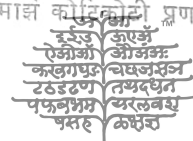 माझं कोटिकोटी प्रण
अ आ TM
इईउ ऊएॲ
ऐओऑ औअंअः
कखगघङ चछजझञ
टठडढण तथदधन
पफबभम यरलवश
षसह ळक्षज्ञ